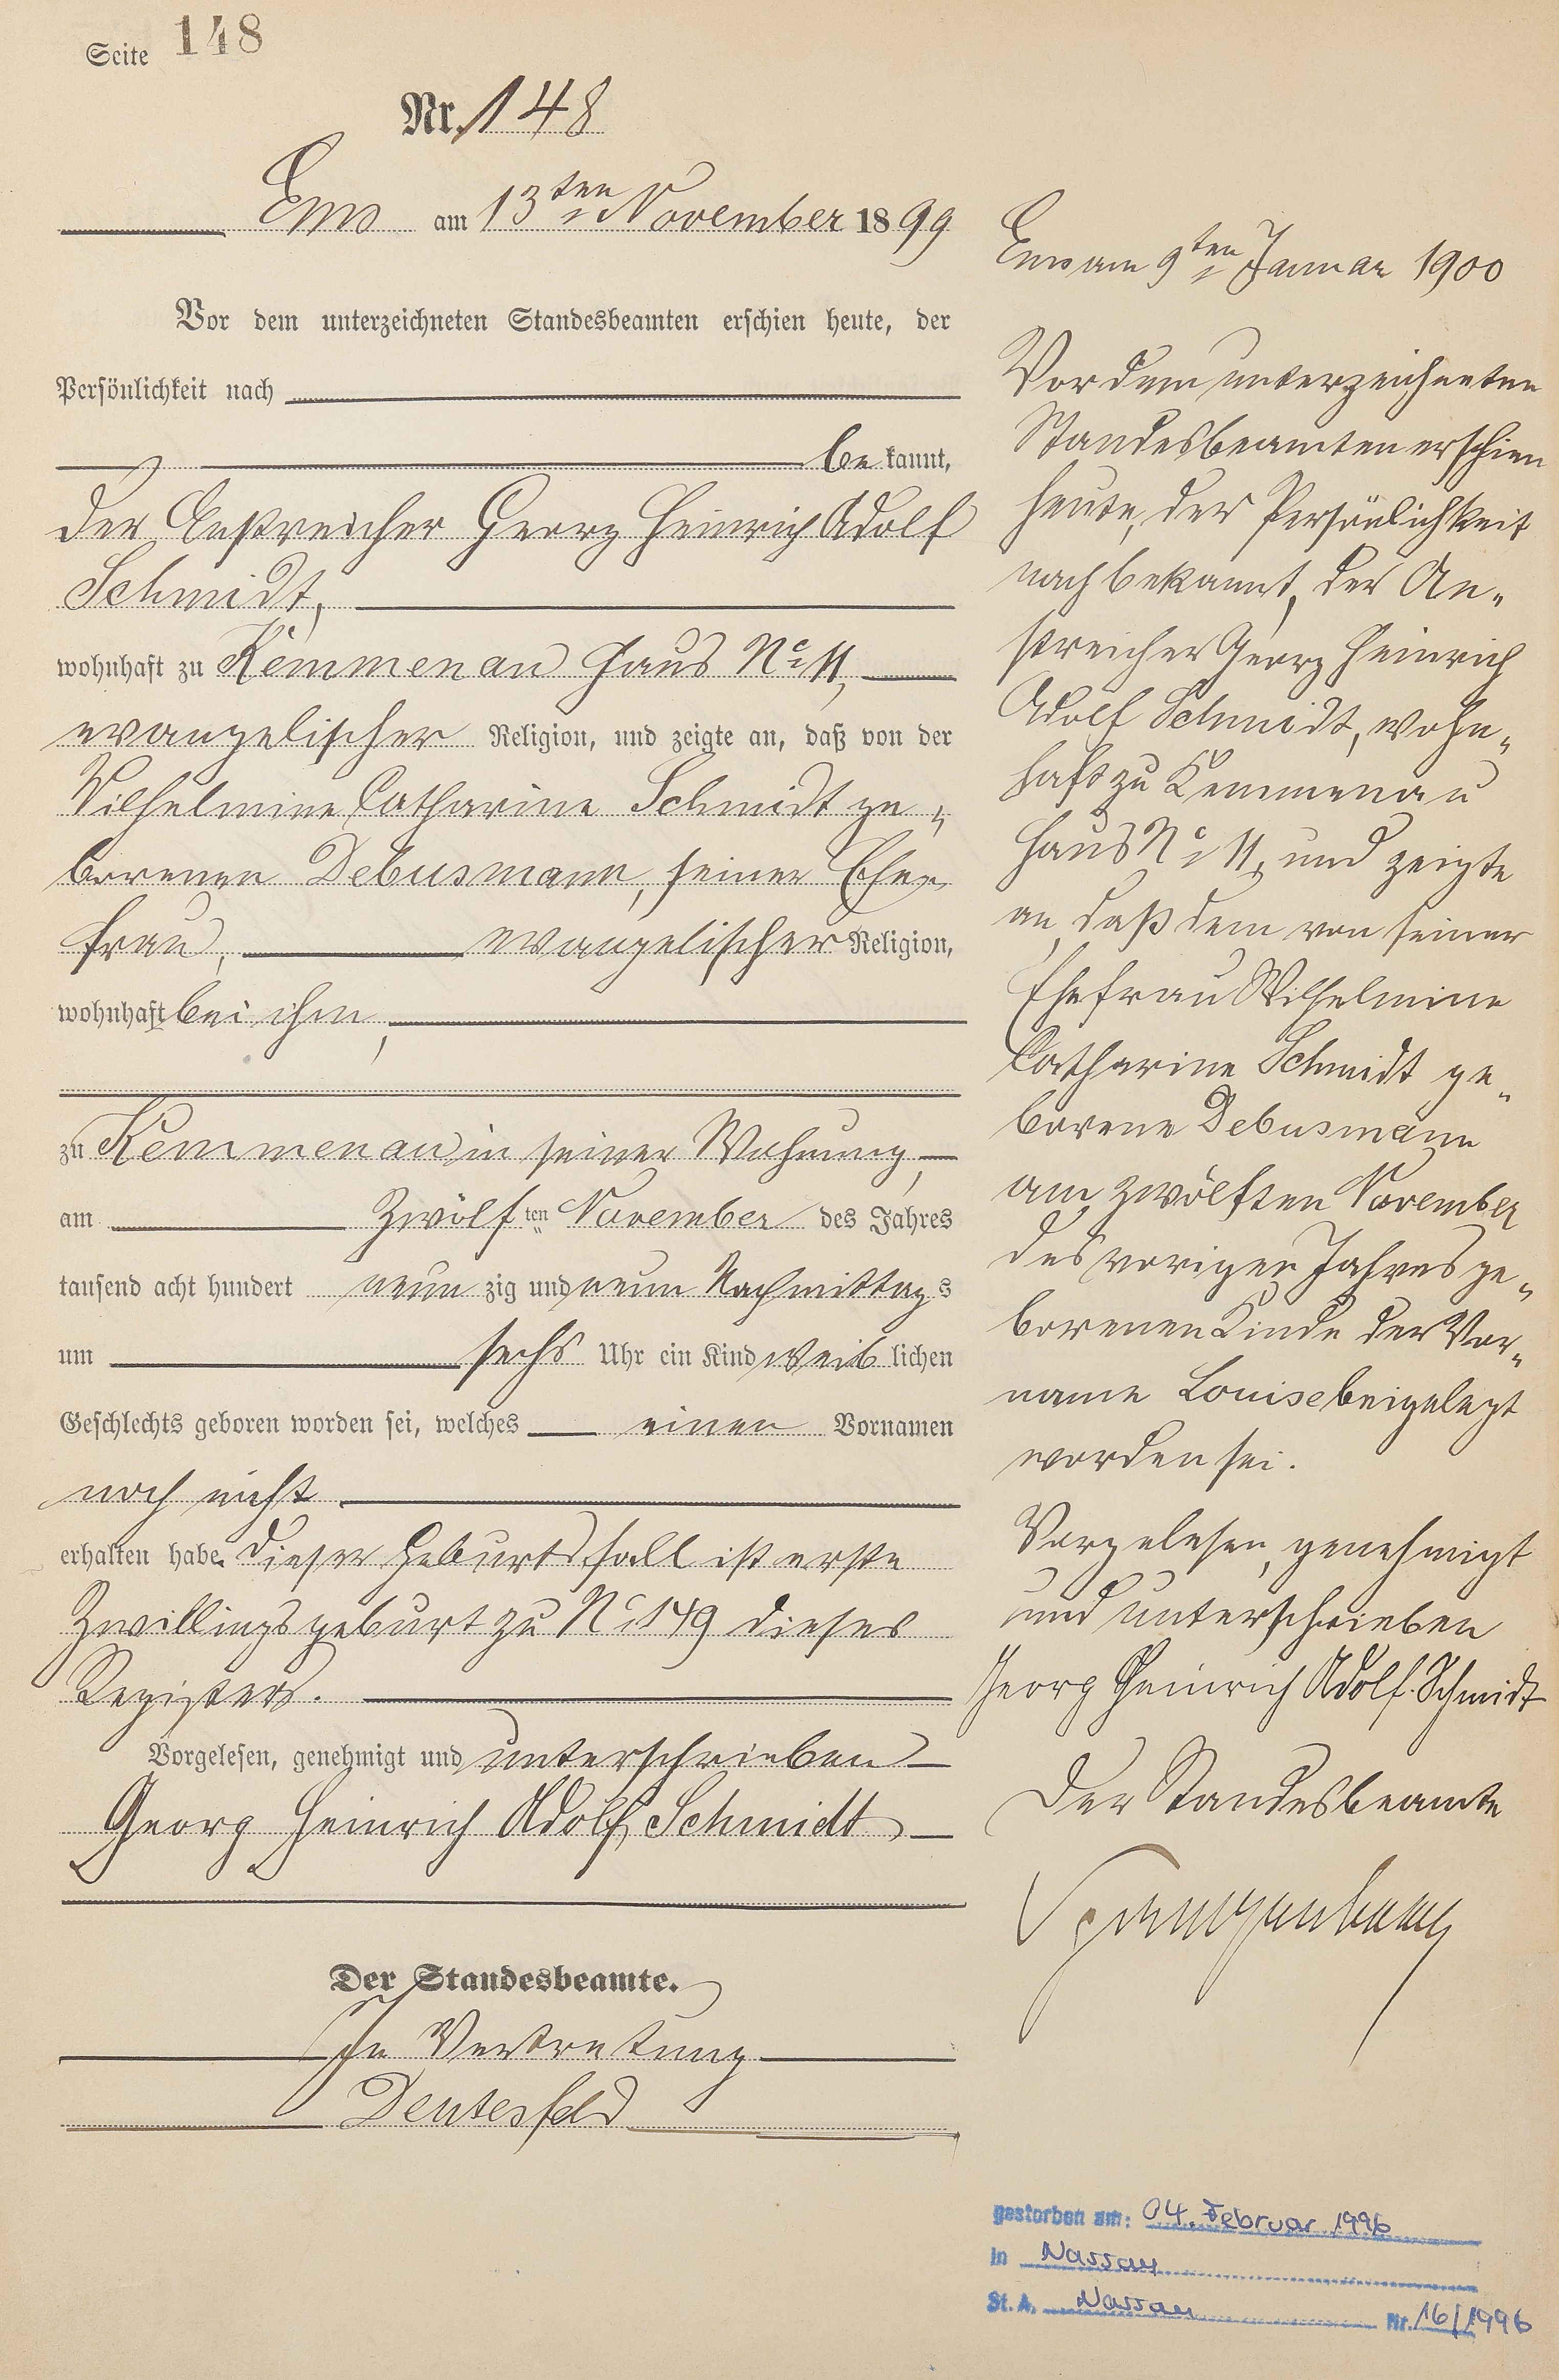 Seite 148
Nr. 148
Ems am 13ten November 1899
Vor dem unterzeichneten Standesbeamten erschien heute, der
Persönlichkeit nach
bekannt,
der Anstreicher Georg Heinrich Adolf
Schmidt,
wohnhaft zu Kemmenau Haus No 11,
evangelischer Religion, und zeigte an, daß von der
Wilhelmine Catharine Schmidt ge„
borenen Debusmann, seiner Ehe„
frau, evangelischer Religion,
wohnhaft bei ihm,
zu Kemmenau in seiner Wohnung,
am zwölften November des Jahres
tausend acht hundert neunzig und neun Nachmittags
um sechs Uhr ein Kind weiblichen
Geschlechts geboren worden sei, welches einen Vornamen
noch nicht
erhalten habe. Dieser Geburtsfall ist erste
Zwillingsgeburt zu No 149 dieses
Registers.
Vorgelesen, genehmigt und unterschrieben
Georg Heinrich Adolf Schmidt
Der Standesbeamte.
In Vertretung
Deutesfeld
Ems am 9ten Januar 1900
Vor dem unterzeichneten
Standesbeamten erschien
heute, der Persönlichkeit
nach bekannt, der An„
streicher Georg Heinrich
Adolf Schmidt, wohn„
haft zu Kemmenau
Haus No 11, und zeigte
an, daß dem von seiner
Ehefrau Wilhelmine
Catharine Schmidt ge„
borene Debusmann
am zwölften November
des vorigen Jahres ge„
borenen Kinde der Vor„
name Louise beigelegt
worden sei.
Vorgelesen, genehmigt
und unterschrieben
Georg Heinrich Adolf Schmidt
Der Standesbeamte
gestorben am: 04. Februar 1996
in Nassau
St. A. Nassau Nr. 16/1996